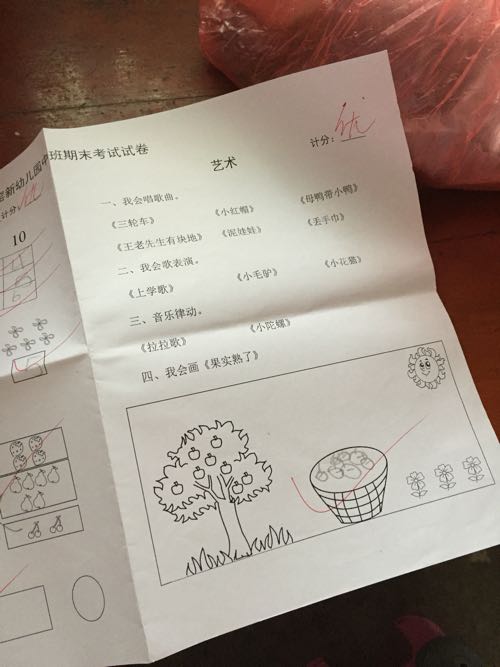 新幼儿园中班期末考试试卷
计分：优
10
艺术
计分：优
一、我会唱歌曲。
《三轮车》 《小红帽》 《母鸭带小鸭》
《王老先生有块地》 《泥娃娃》 《丢手巾》
二、我会歌表演。
《上学歌》 《小毛驴》 《小花猫》
三、音乐律动。
《拉拉歌》 《小陀螺》
四、我会画《果实熟了》